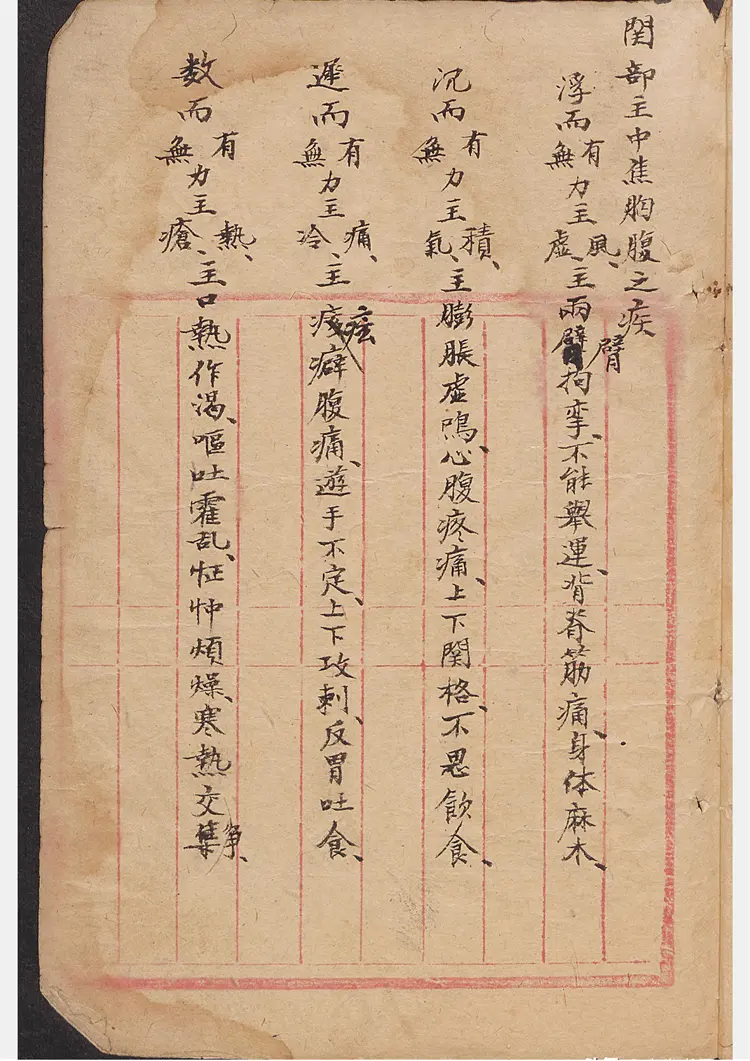 関部主中焦胸腹之疾
浮而有無力主風、虛、主兩臂拘攣、不能舉運、背脊筋痛、身体麻木、
臂
沉而有無力主積、氣、主膨脹虛鳴、心腹疼痛、上下関格、不思飲食、
遲而有無力主痛、冷、主痃癖腹痛、遊手不定、上下攻刺、反胃吐食、
数而有無力主熱、瘡、主口熱作渴、嘔吐霍乱、怔忡煩燥、寒熱交争、